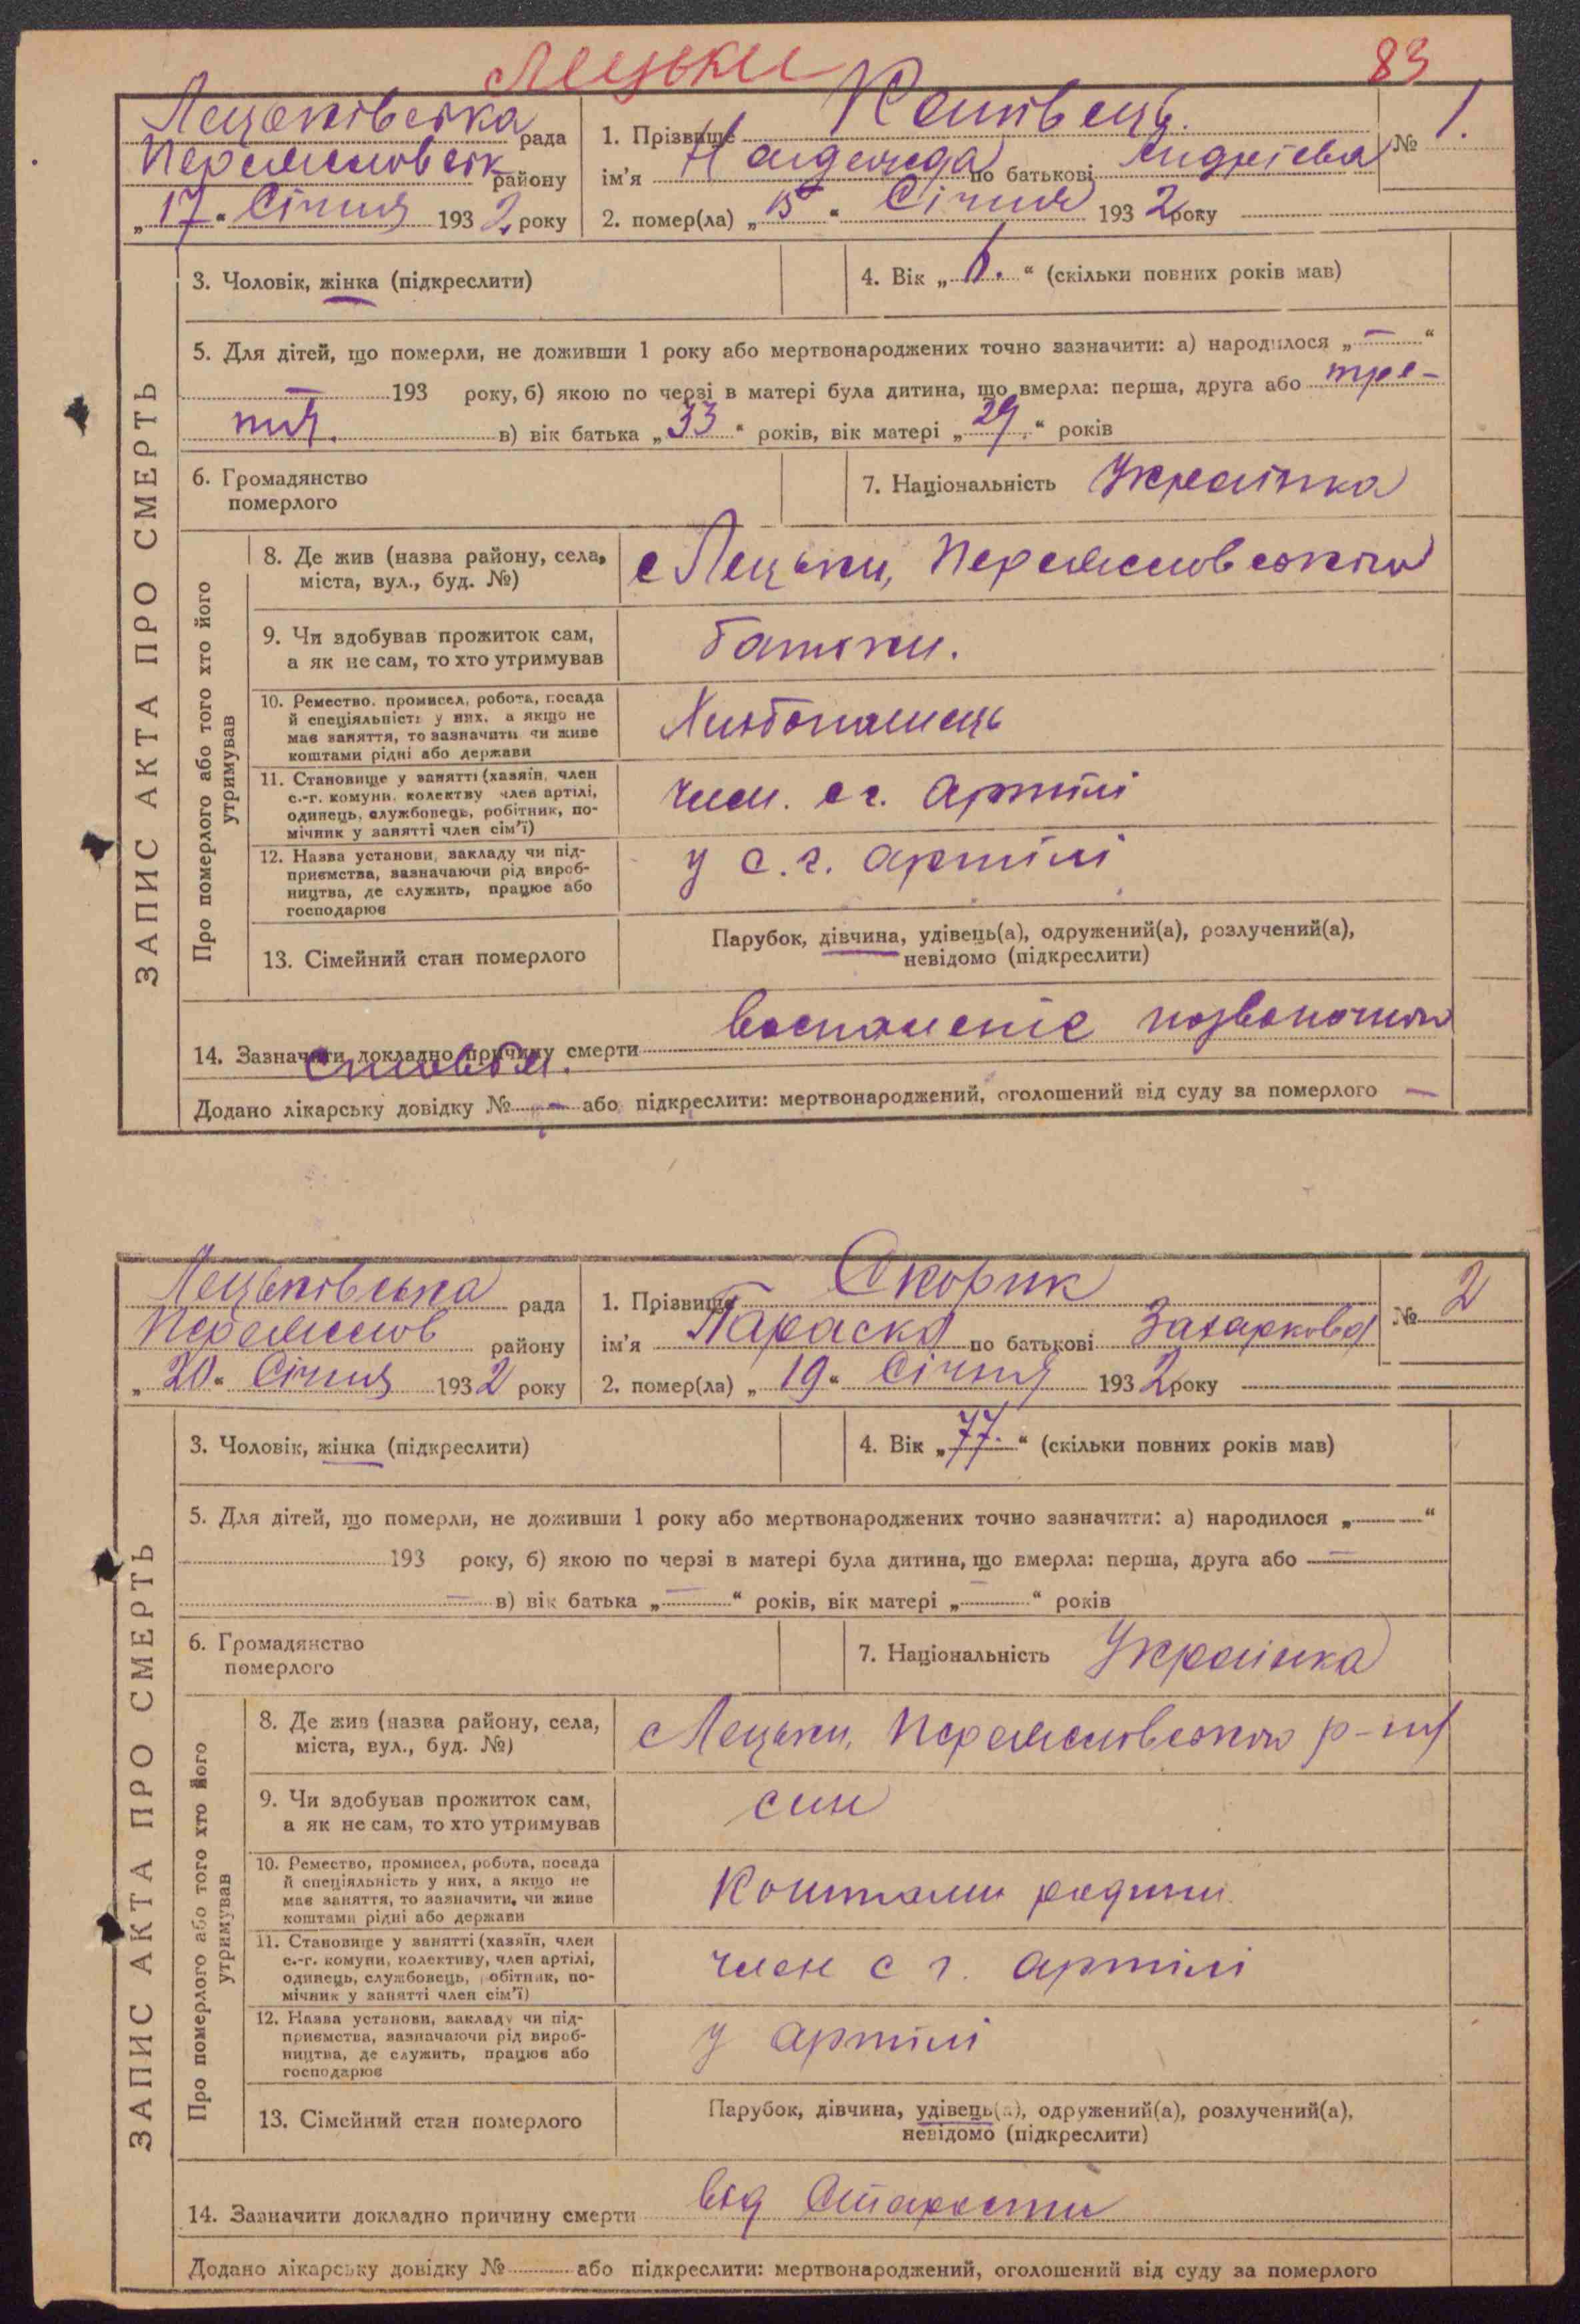 Лецьки
83
Лецьківська рада
Переяславськ району
„17“ Січня 1932 року
1. Прізвище
№ 1.
ім'я Надежда по батькові Андрієва
2. помер(ла) „15“ Січня 1932 року
ЗАПИС АКТА ПРО СМЕРТЬ
3. Чоловік, жінка (підкреслити)
4. Вік „6.“ (скільки повних років мав)
5. Для дітей, що померли, не доживши 1 року або мертвонароджених точно зазначити: а) народилося „—“
— 193 року, б) якою по черзі в матері була дитина, що вмерла: перша, друга або тре-
тя. в) вік батька „33“ років, вік матері „29.“ років
6. Громадянство
померлого
7. Національність Українка
Про померлого або того хто його
утримував
8. Де жив (назва району, села,
міста, вул., буд. №)
с Лецьки, Переяславського
9. Чи здобував прожиток сам,
а як не сам, то хто утримував
батьки.
10. Ремество, промисел, робота, посада
й спеціяльність у них, а якщо не
має заняття, то зазначити чи живе
коштами рідні або держави
Хлібопашець
11. Становище у занятті (хазяїн, член
с.-г. комуни, колектву член артілі,
одинець, службовець, робітник, по-
мічник у занятті член сім'ї)
член. с г. артілі
12. Назва установи, закладу чи під-
приємства, зазначаючи рід вироб-
ництва, де служить, працює або
господарює
у с. г. артілі
13. Сімейний стан померлого
Парубок, дівчина, удівець(а), одружений(а), розлучений(а),
невідомо (підкреслити)
14. Зазначити докладно причину смерти воспаленіє позвоночного
столба.
Додано лікарську довідку № — або підкреслити: мертвонароджений, оголошений від суду за померлого —
Лецьківська рада
Переяслав району
„20“ Січня 1932 року
1. Прізвище Скорик
№ 2
ім'я Параска по батькові Захаркова
2. помер(ла) „19“ Січня 1932 року
ЗАПИС АКТА ПРО СМЕРТЬ
3. Чоловік, жінка (підкреслити)
4. Вік „77.“ (скільки повних років мав)
5. Для дітей, що померли, не доживши 1 року або мертвонароджених точно зазначити: а) народилося „—“
193 року, б) якою по черзі в матері була дитина, що вмерла: перша, друга або —
— в) вік батька „—“ років, вік матері „—“ років
6. Громадянство
померлого
7. Національність Українка
Про померлого або того хто його
утримував
8. Де жив (назва району, села,
міста, вул., буд. №)
с Лецьки, Переяславського р-ну
9. Чи здобував прожиток сам,
а як не сам, то хто утримував
син
10. Ремество, промисел, робота, посада
й спеціяльність у них, а якщо не
має заняття, то зазначити, чи живе
коштами рідні або держави
Коштами родини.
11. Становище у занятті (хазяїн, член
с.-г. комуни, колективу, член артілі,
одинець, службовець, робітник, по-
мічник у занятті член сім'ї)
член с г. артілі
12. Назва установи, закладу чи під-
приємства, зазначаючи рід вироб-
ництва, де служить, працює або
господарює
у артілі
13. Сімейний стан померлого
Парубок, дівчина, удівець(а), одружений(а), розлучений(а),
невідомо (підкреслити)
14. Зазначити докладно причину смерти від старости
Додано лікарську довідку № або підкреслити: мертвонароджений, оголошений від суду за померлого